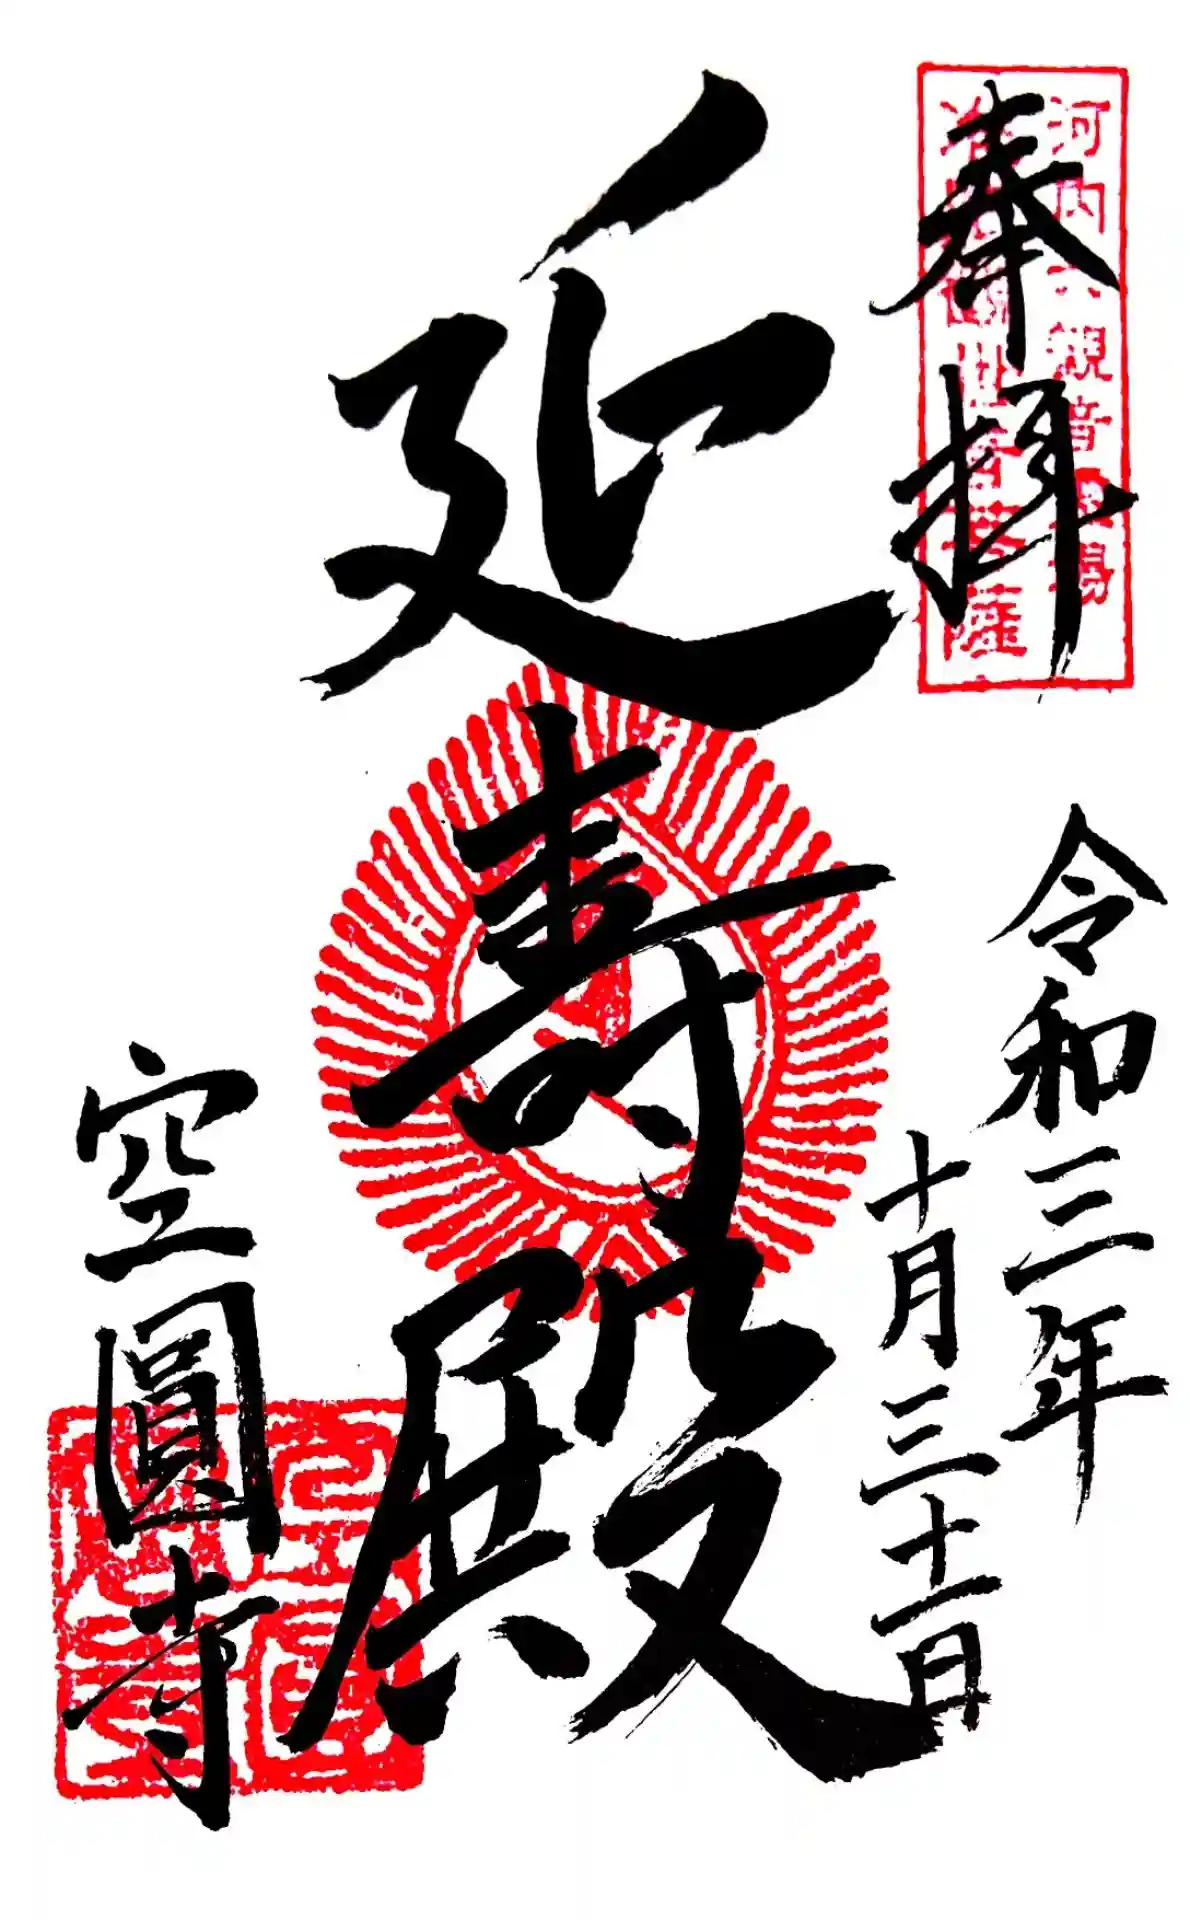 奉拝
河内六観音霊場
准胝観世音菩薩
令和三年
十月三十一日
延寿殿
空圓寺